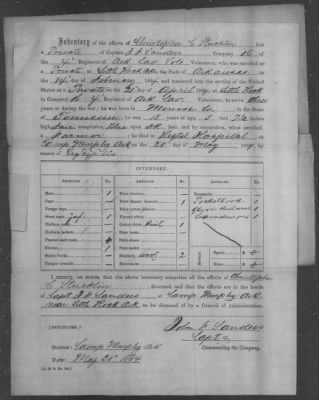 Inventory of the effects of Christopher C Stricklin late
a Private of Captain J. F Sanders Company H. of
the 4" Regiment of Ark Cav Vols Volunteers, who was enrolled as
a Private at Little Rock Ark in the State of Arkansas on
the day of February 1864, and mustered into the service of the United
States as a Private on the 21 day of April 1864, at Little Rock
in Company H. 4 Regiment of Ark Cav. Volunteers, to serve three
years or during the war; he was born in Monroe Co
in Tennessee; he was 18 years of age, 5 feet 7½ inches
high complexion, Blue eyes, DK hair, and by occupation, when enrolled,
a Farmer; he died in Regtl Hospital
Camp Murphy Ark on the 20" day of May 1864, by
reason of
INVENTORY.
ARTICLES.
ARTICLES.
Hats 1
Caps
Forage caps
Great coats
Uniform
Uniform jackets
Flannel sack coats
Blouses 1
Blanket sacks
Canton overalls
Pairs trowsers
Pairs flannel drawers 1
Pairs cotton drawers
Flannel shirts
Cotton shirts 1
Pairs boots
Pairs shoes
Pairs socks
Blankets wool 2
Haversacks
Pocketbook 1
Suspenders 1
Specie
Notes
I CERTIFY, ON HONOR, that the above inventory comprises all the effects of Christopher
C Stricklin deceased, and that the effects are in the hands
of Capt J. F Sanders at Camp Murphy Ark
near Little Rock Ark to be disposed of by a Council of Administration.
(DUPLICATES.)
John F Sanders
Capt
Commanding the Company.
STATION: Camp Murphy Ark
DATE: May 20" 1864